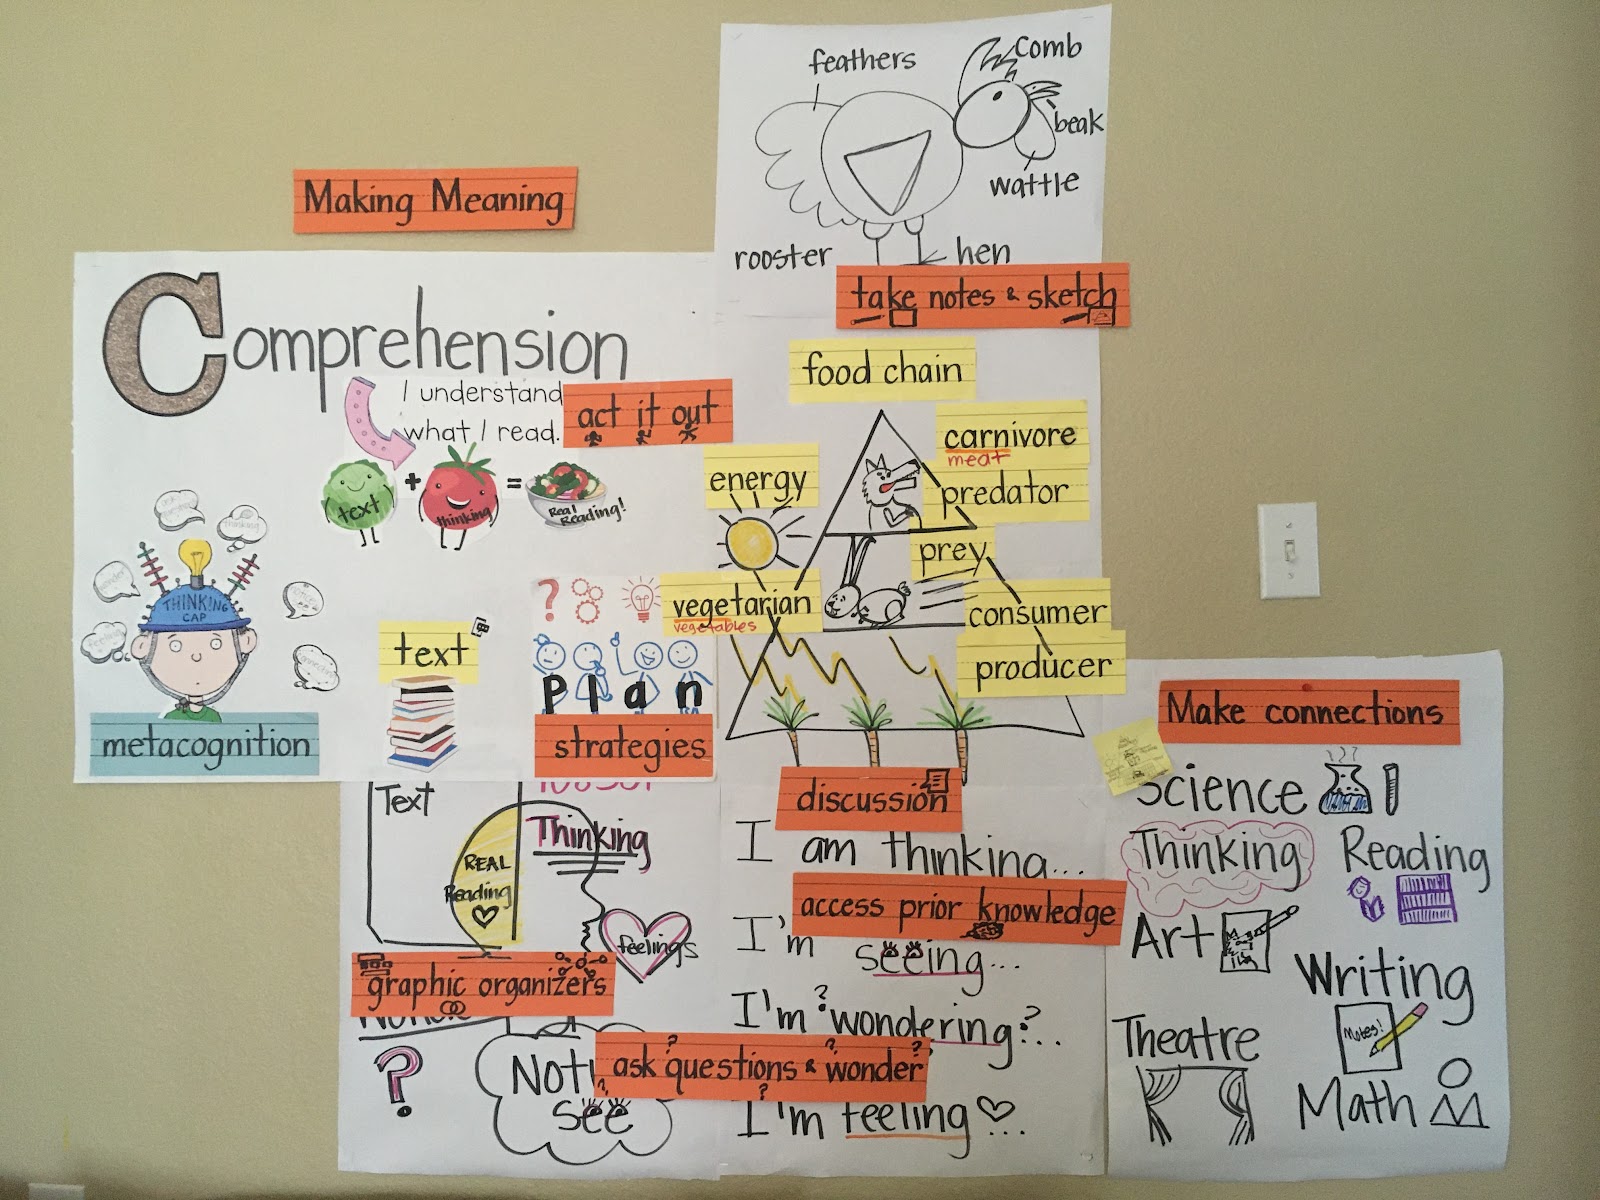 Making Meaning
Comprehension
I understand
what I read.
act it out
text + thinking = Real Reading!
thinking
wonder
THINKING
CAP
metacognition
text
Plan
strategies
feathers
comb
beak
wattle
rooster
hen
take notes & sketch
food chain
energy
carnivore
meat
predator
prey
vegetarian
vegetables
consumer
producer
Text
Thinking
REAL
Reading
feelings
graphic organizers
?
see
discussion
I am thinking...
access prior knowledge
I'm seeing...
I'm wondering?...
ask questions & wonder
I'm feeling ...
Make connections
Science
Thinking
Reading
Art
Writing
Notes!
Theatre
Math